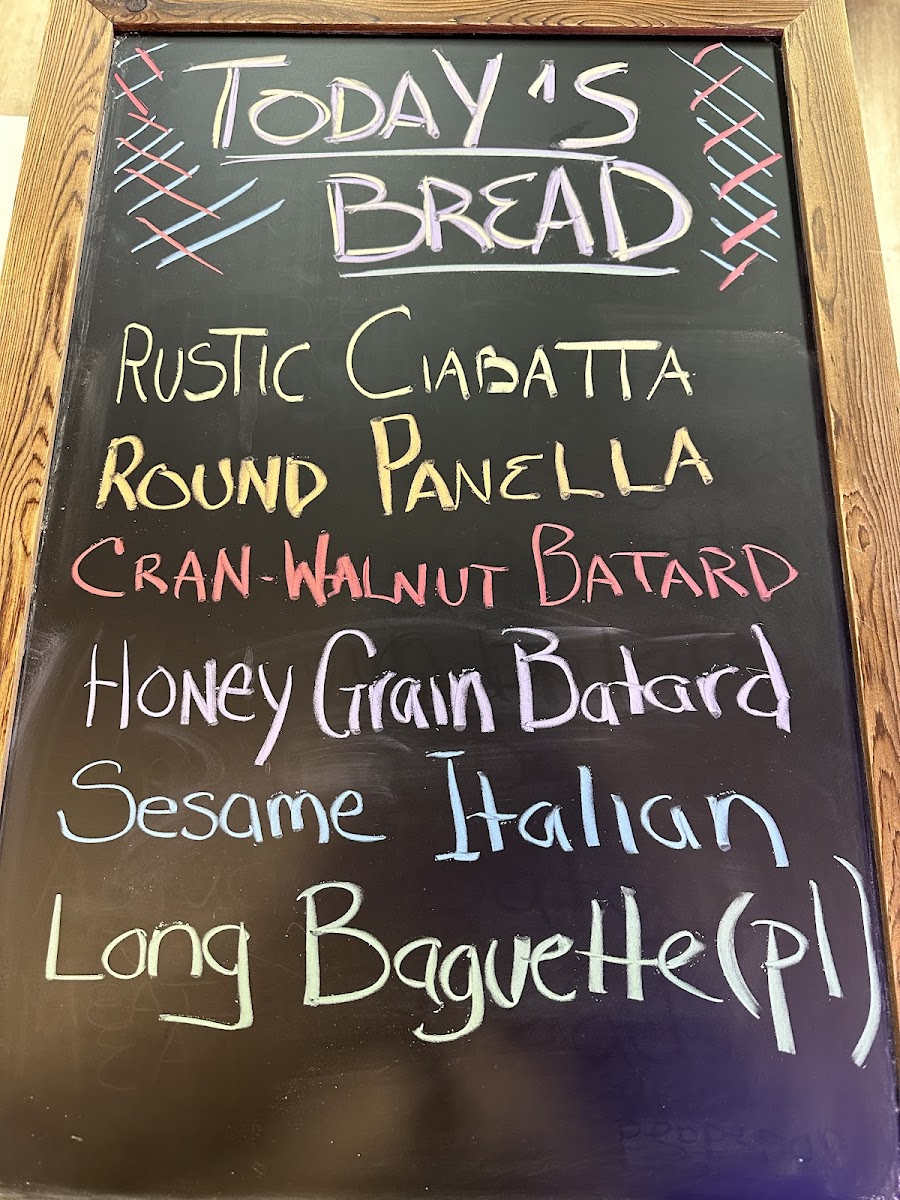 TODAY'S
BREAD
RUSTIC CIABATTA
ROUND PANELLA
CRAN-WALNUT BATARD
HONey Grain Batard
Sesame Italian
Long Baguette (pl)